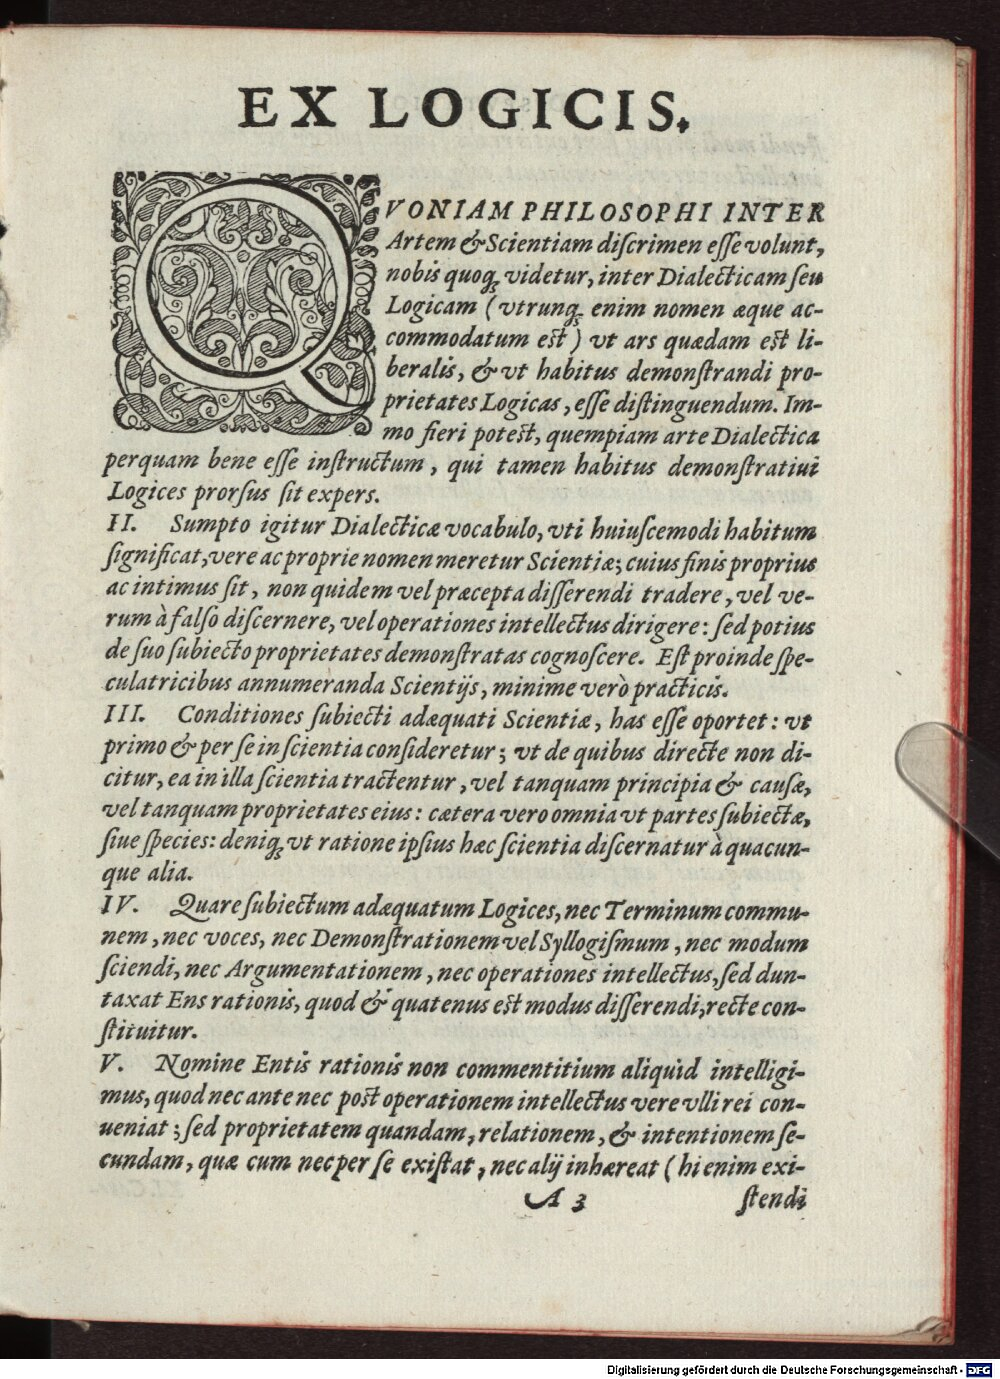 EX LOGICIS.
QVONIAM PHILOSOPHI INTER
Artem & Scientiam diſcrimen eſſe volunt,
nobis quoq; videtur, inter Dialecticam ſeu
Logicam (vtrunq; enim nomen æque ac-
commodatum est) vt ars quædam est li-
beralis, & vt habitus demonſtrandi pro-
prietates Logicas, eſſe diſtinguendum. Im-
mo fieri potest, quempiam arte Dialectica
perquam bene eſſe inſtructum, qui tamen habitus demonſtratiui
Logices prorſus ſit expers.
II. Sumpto igitur Dialecticæ vocabulo, vti huiuſcemodi habitum
ſignificat, vere ac proprie nomen meretur Scientiæ; cuius finis proprius
ac intimus ſit, non quidem vel præcepta diſſerendi tradere, vel ve-
rum à falſo diſcernere, vel operationes intellectus dirigere: ſed potius
de ſuo ſubiecto proprietates demonſtratas cognoſcere. Est proinde ſpe-
culatricibus annumeranda Scientijs, minime verò practicis.
III. Conditiones ſubiecti adæquati Scientiæ, has eſſe oportet: vt
primo & per ſe in ſcientia conſideretur; vt de quibus directe non di-
citur, ea in illa ſcientia tractentur, vel tanquam principia & cauſæ,
vel tanquam proprietates eius: cætera vero omnia vt partes ſubiectæ,
ſiue ſpecies: deniq; vt ratione ipſius hæc ſcientia diſcernatur à quacun-
que alia.
IV. Quare ſubiectum adæquatum Logices, nec Terminum commu-
nem, nec voces, nec Demonſtrationem vel Syllogiſmum, nec modum
ſciendi, nec Argumentationem, nec operationes intellectus, ſed dun-
taxat Ens rationis, quod & quatenus est modus diſſerendi, recte con-
ſtituitur.
V. Nomine Entis rationis non commentitium aliquid intelligi-
mus, quod nec ante nec post operationem intellectus vere vlli rei con-
ueniat; ſed proprietatem quandam, relationem, & intentionem ſe-
cundam, quæ cum nec per ſe exiſtat, nec alij inhæreat (hi enim exi-
A 3 ſtendi
Digitalisierung gefördert durch die Deutsche Forschungsgemeinschaft - DFG